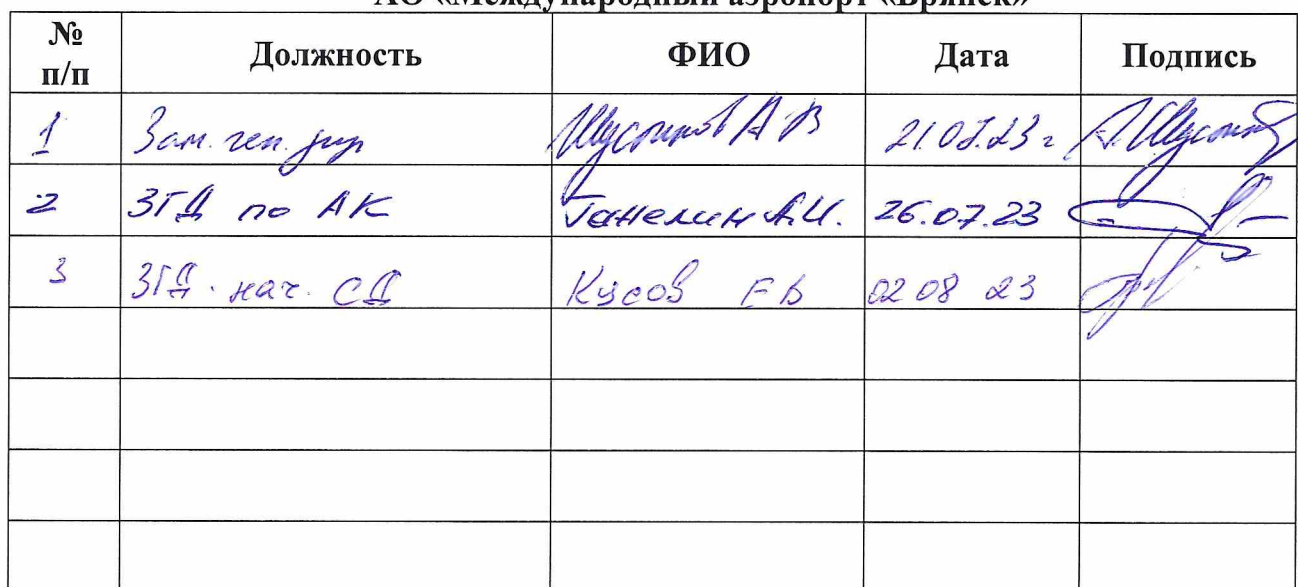 АО «Международный аэропорт «Брянск»
№ п/п Должность ФИО Дата Подпись
1 Зам. ген. дир А В 23 г
2 ЗГД по АК Ганелин А.И. 26.07.23
3 ЗГД. нач. СД Кусов Е В 02 08 23